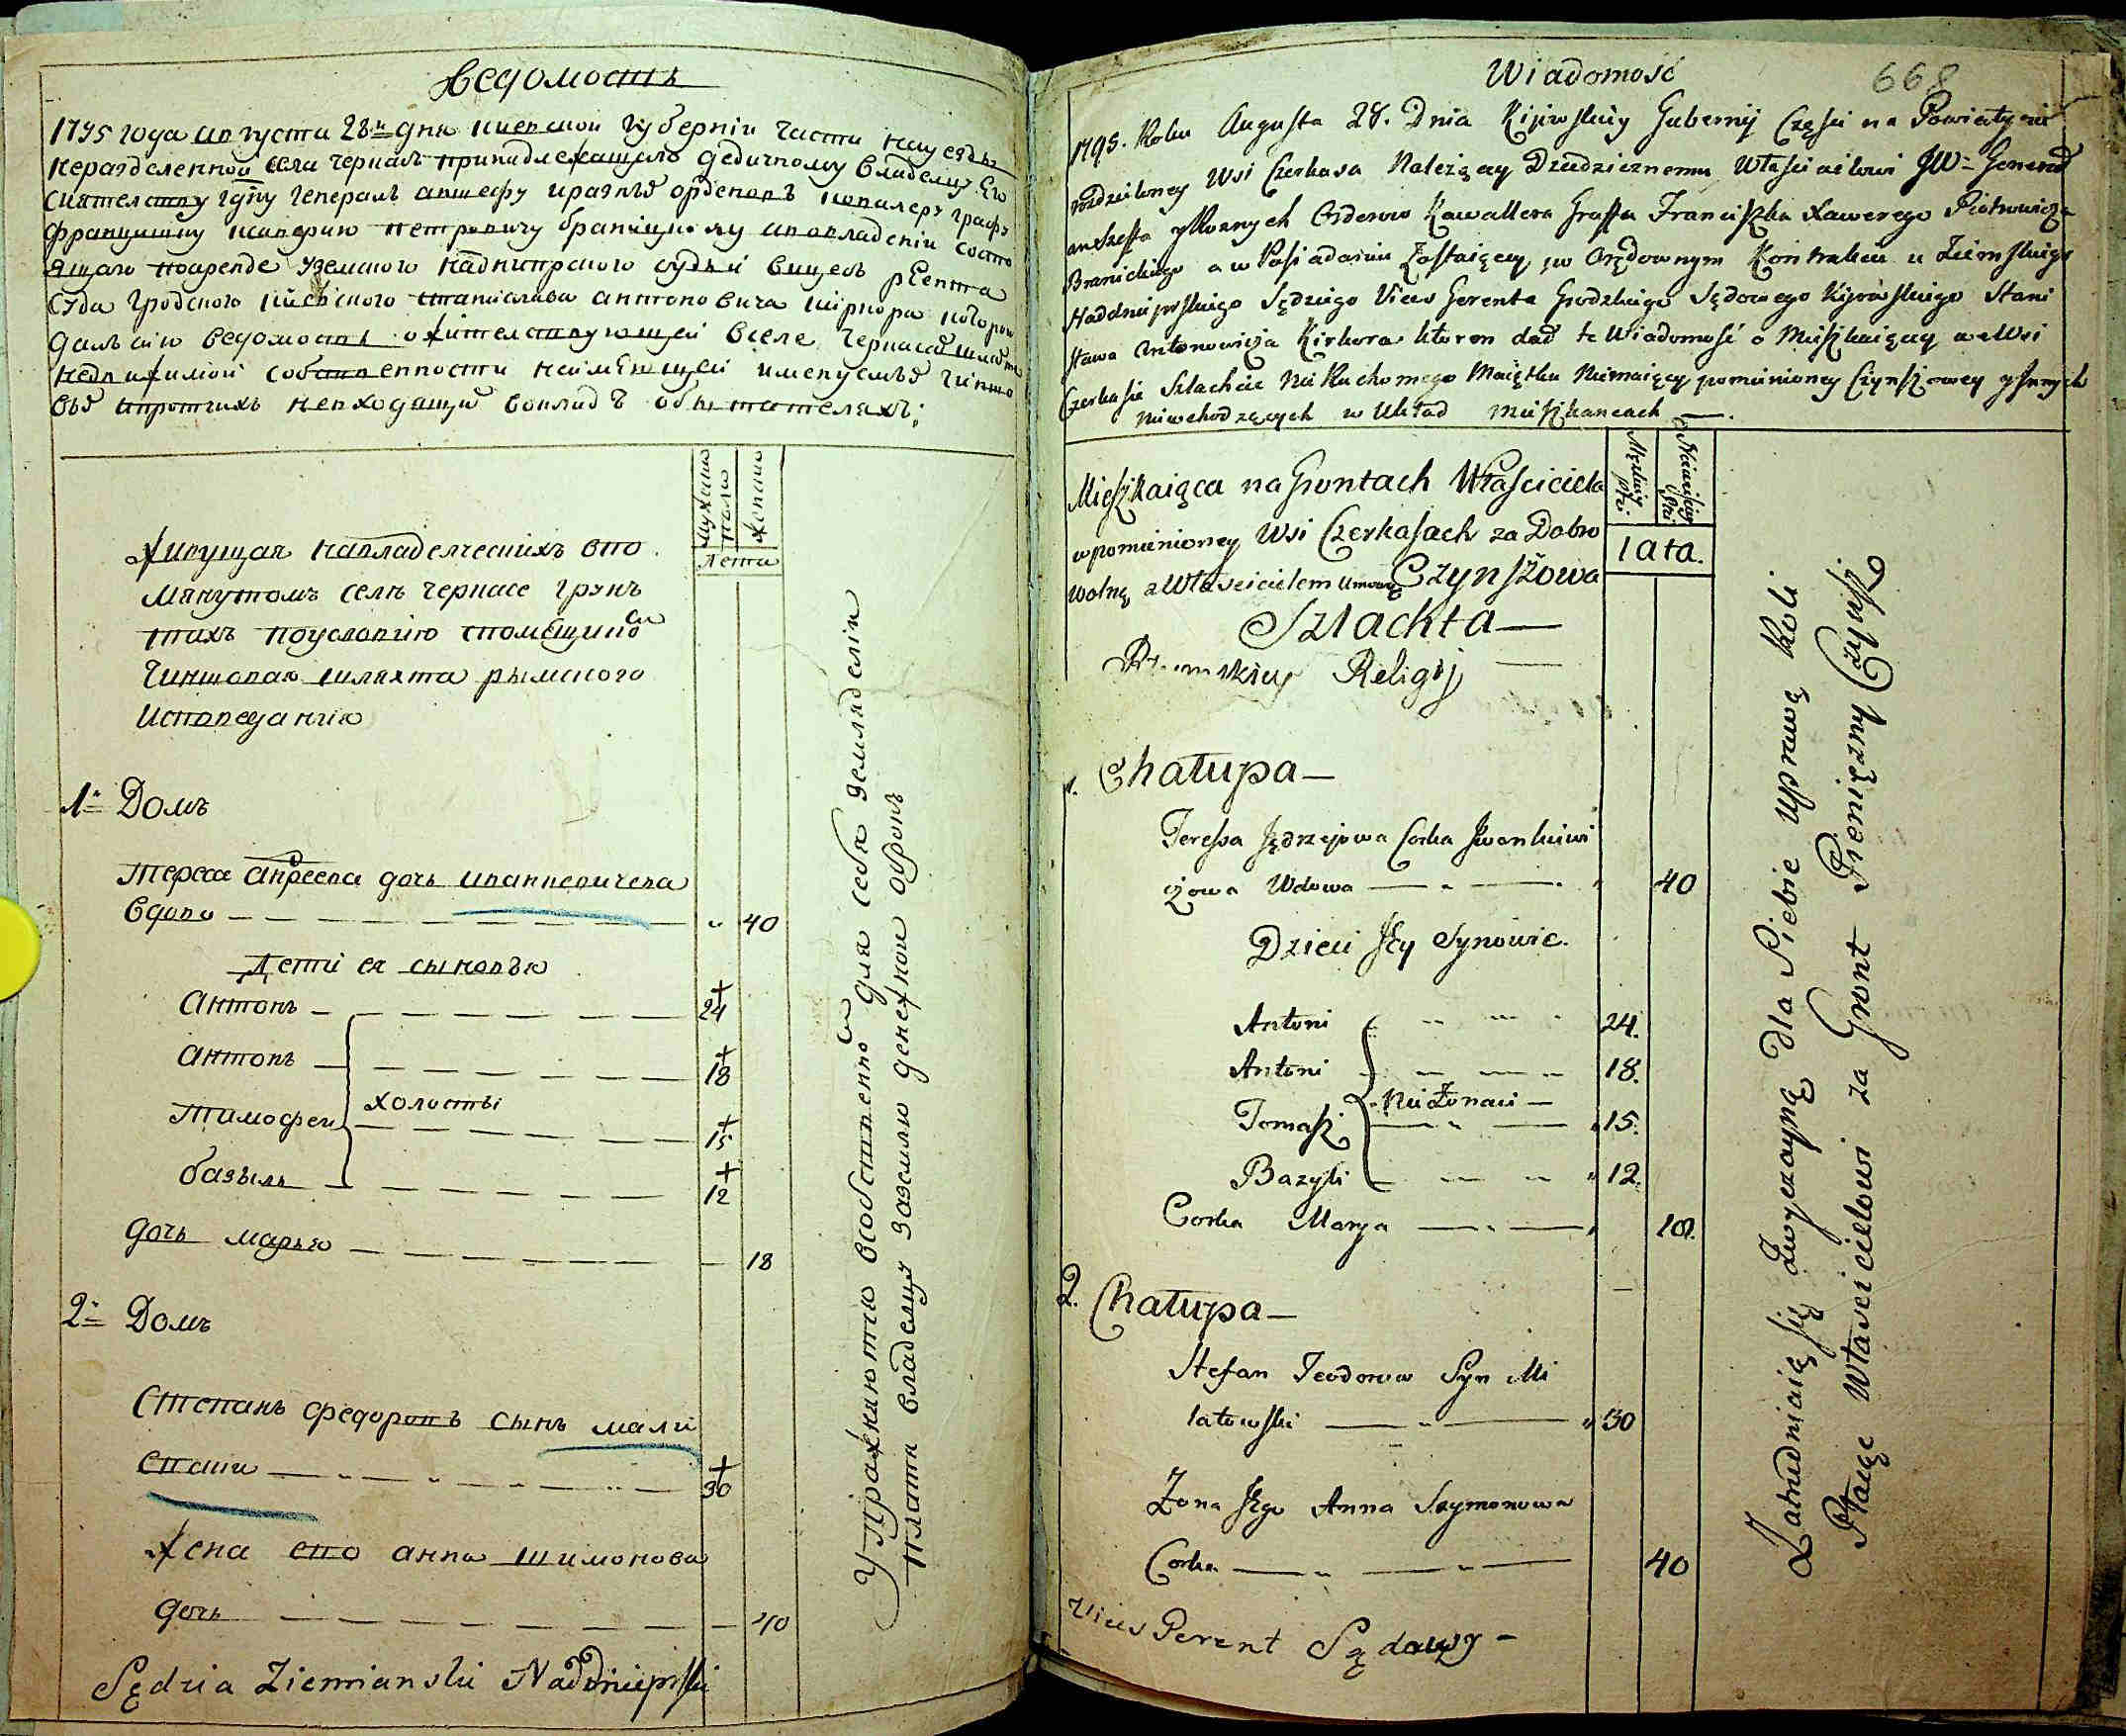 Ведомость
1795 года августа 28 дня киевской губернии части на уезды
неразделенной села черкасъ принадлежащаго дедичному владелцу Его
сиятелству гдну генералъ аншефу и разныхъ орденовъ кавалеру графу
францишку ксаверию петровичу браницкому авовладении состо
ящаго поаренде уземского наднипрского судьи вицесъ рЕента
суда гродского киевского станислава антоновича киркора которой
далъ сию ведомость о жителствующей вселе черкасе шляхте
недвижимой собственности неимеющей именуемые чиншо
вые ипротчихъ невходящие вокладъ обытателяхъ:
Мужеска
пола
женска
Лета
живущая навладелческихъ впо
мянутомъ селе черкасе грун
тахъ поусловию спомещико
чиншовая шляхта рымского
исповедания
1й Домъ
тереса андреева дочь иванкевичева
вдова 40
Дети ея сыновья
Антонъ 24
Антонъ 18
холосты
тимофей 15
базыль 12
дочь марья 18
2й Домъ
Степанъ федоровъ сынъ мали
вски 30
жена ево анна шимонова
дочь 40
Упражняются всобственной для себя земляделии
платя владелцу заземлю денежной оброкъ
Sędzia Ziemianski Naddnieprski
Wiadomość
668
1795. Roku Augusta 28. Dnia Kijowskiey Gubernij Części na Powiaty nie
rozdzieloney Wsi Czerkasa Należącey Dziedzicznemu Właścicielowi JW Generał
anszefta y Roznych Orderow Kawallera Graffa Franciszka Xawerego Piotrowicza
Branickiego a w Posiadaniu Zostaiącey w Orędownym Kontrakcie u Ziemskiego
Naddnieprskiego Sędziego Vices Gerenta Grodzkiego Sędowego Kijowskiego Stani
sława Antonowicza Kirkora ktoren dał te Wiadomość o Mieszkaiącey we Wsi
Czerkasie Szlachcie Nie Ruchomego Maiętku Niemaiącey pomienioney Czynszowey y Innych
niewchodzących w Układ mieszkancach
Mieszkaiąca na Gruntach Właściciela
wpomienioney Wsi Czerkasach za Dobro
wolną z Właścicielem Umową Czynszowa
Szlachta
Rzymskiey Religij
Męskiey
Płci
Niewieściey
Płci
lata.
1. Chałupa
Teressa Jędrzejowa Corka Jwankiewi
czowa Wdowa 40
Dzieci Jey Synowie.
Antoni 24.
Antoni 18.
Nie Żonaci
Tomasz 15.
Bazyli 12.
Corka Marya 18.
2. Chałupa
Stefan Teodorow Syn Mi
latowski 30
Żona Jego Anna Szymonowa
Corka 40
Zatrudniaią się Zwyczayną dla Siebie Uprawą Roli
Płacąc Właścicielowi za Gront Pieniężny Czynsz
Vices Gerent Sądowy